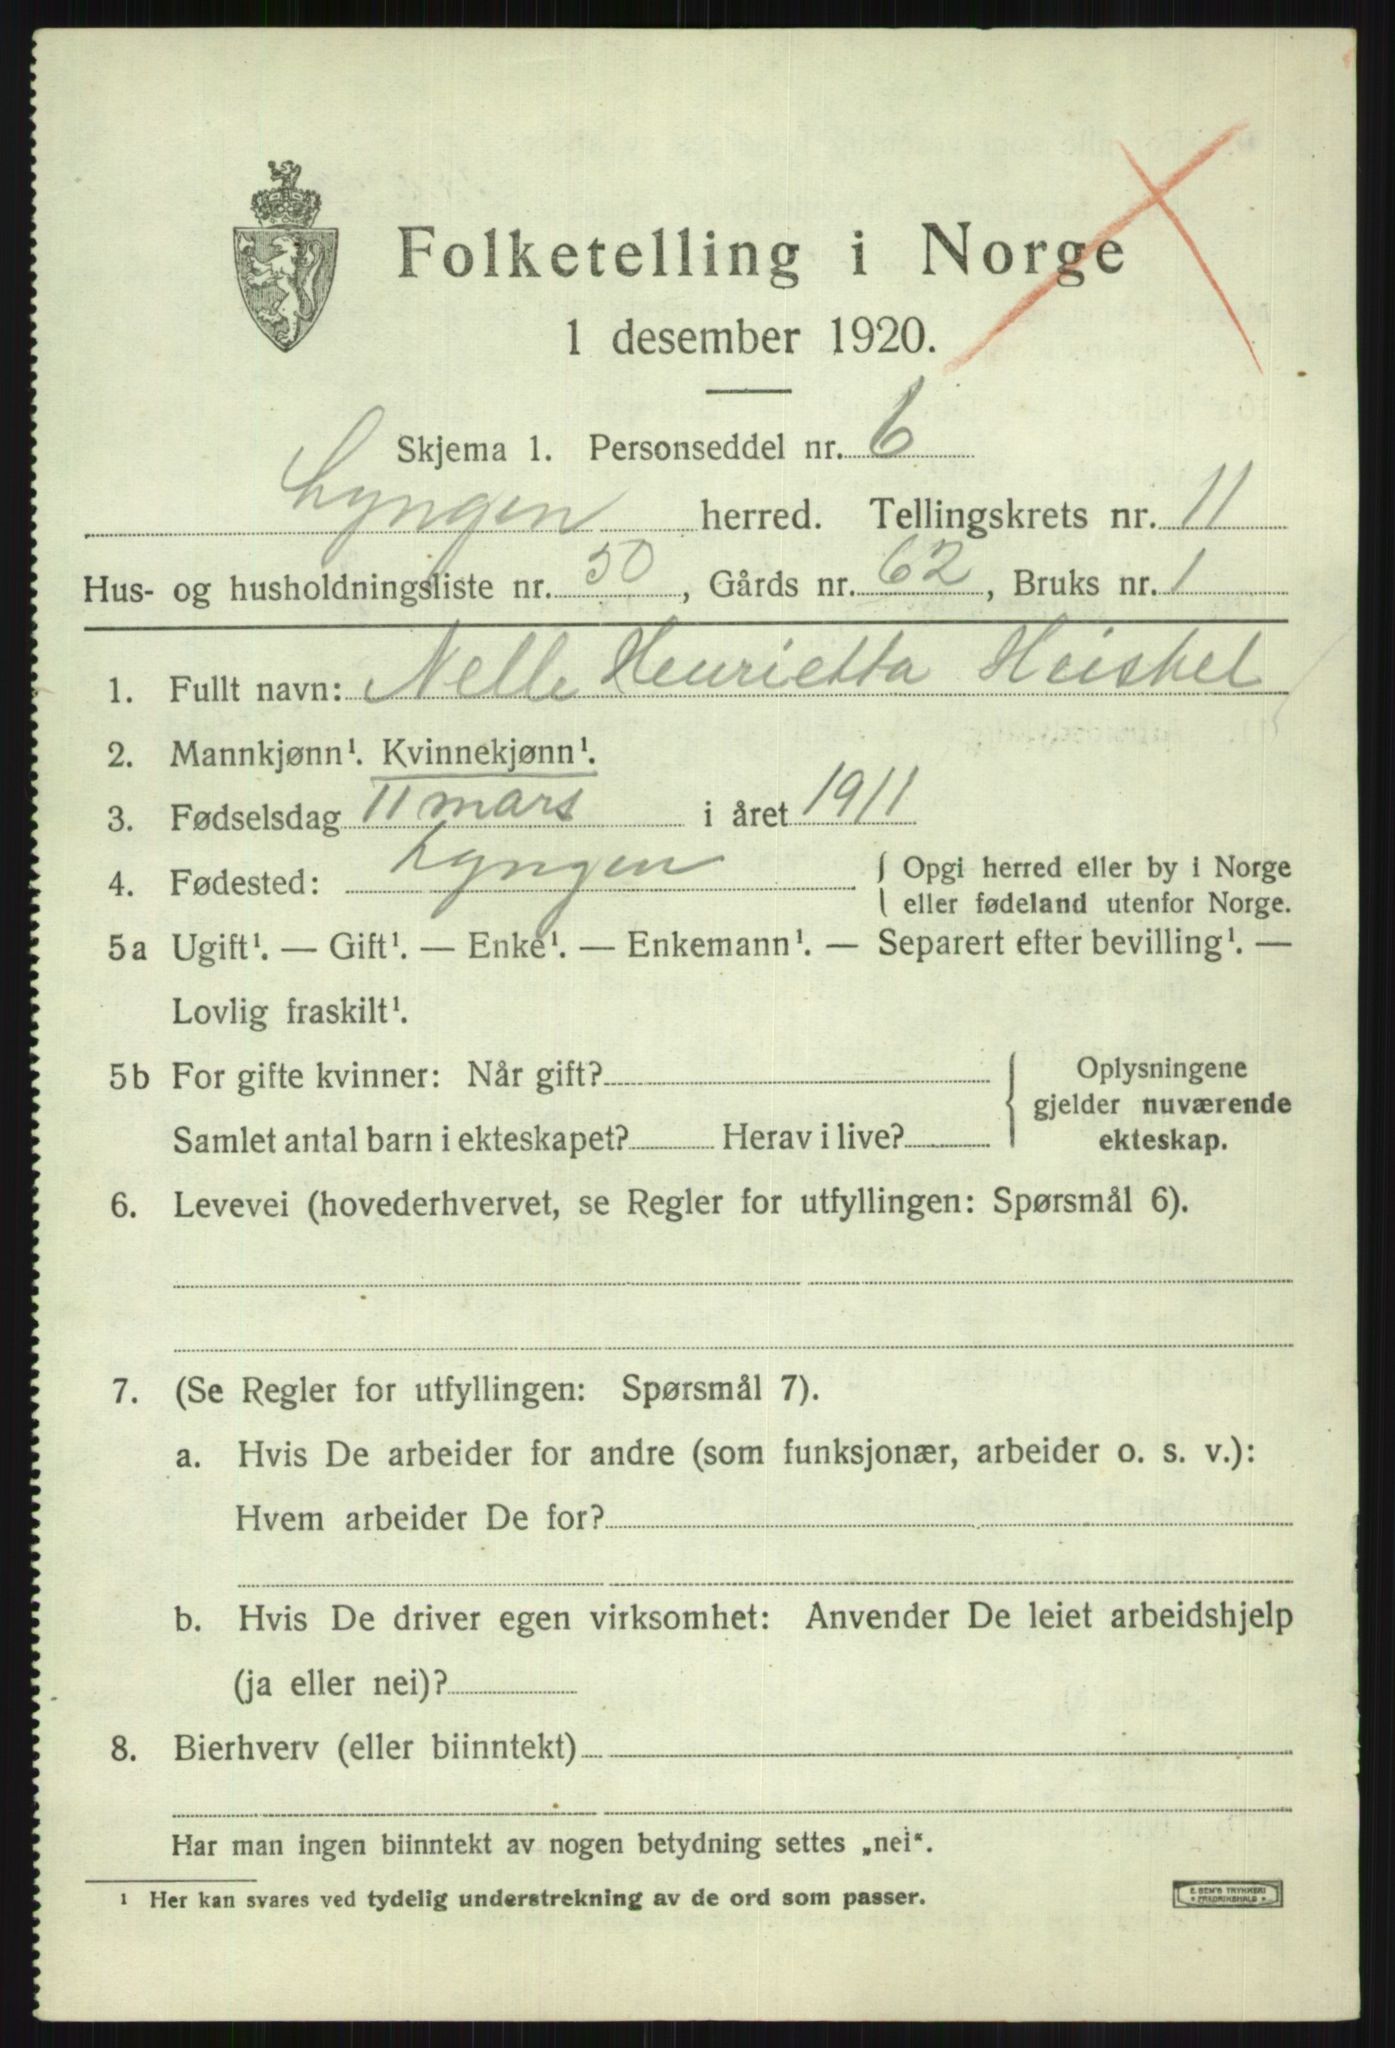 Folketelling i Norge
1 desember 1920.
Skjema 1. Personseddel nr. 6
Lyngen herred. Tellingskrets nr. 11
Hus- og husholdningsliste nr. 50, Gårds nr. 62, Bruks nr. 1
1. Fullt navn: Nelle Henrietta Heiskel
2. Mannkjønn¹. Kvinnekjønn¹.
3. Fødselsdag 11 mars i året 1911
4. Fødested: Lyngen { Opgi herred eller by i Norge
eller fødeland utenfor Norge.
5a Ugift¹. — Gift¹. — Enke¹. — Enkemann¹. — Separert efter bevilling¹. —
Lovlig fraskilt¹.
5b For gifte kvinner: Når gift? { Oplysningene
gjelder nuværende
Samlet antal barn i ekteskapet? Herav i live? ekteskap.
6. Levevei (hovederhvervet, se Regler for utfyllingen: Spørsmål 6).
7. (Se Regler for utfyllingen: Spørsmål 7).
a. Hvis De arbeider for andre (som funksjonær, arbeider o. s. v.):
Hvem arbeider De for?
b. Hvis De driver egen virksomhet: Anvender De leiet arbeidshjelp
(ja eller nei)?
8. Bierhverv (eller biinntekt)
Har man ingen biinntekt av nogen betydning settes „nei“.
¹ Her kan svares ved tydelig understrekning av de ord som passer.
E. SEM'S TRYKKERI
* FREDRIKSHALD *